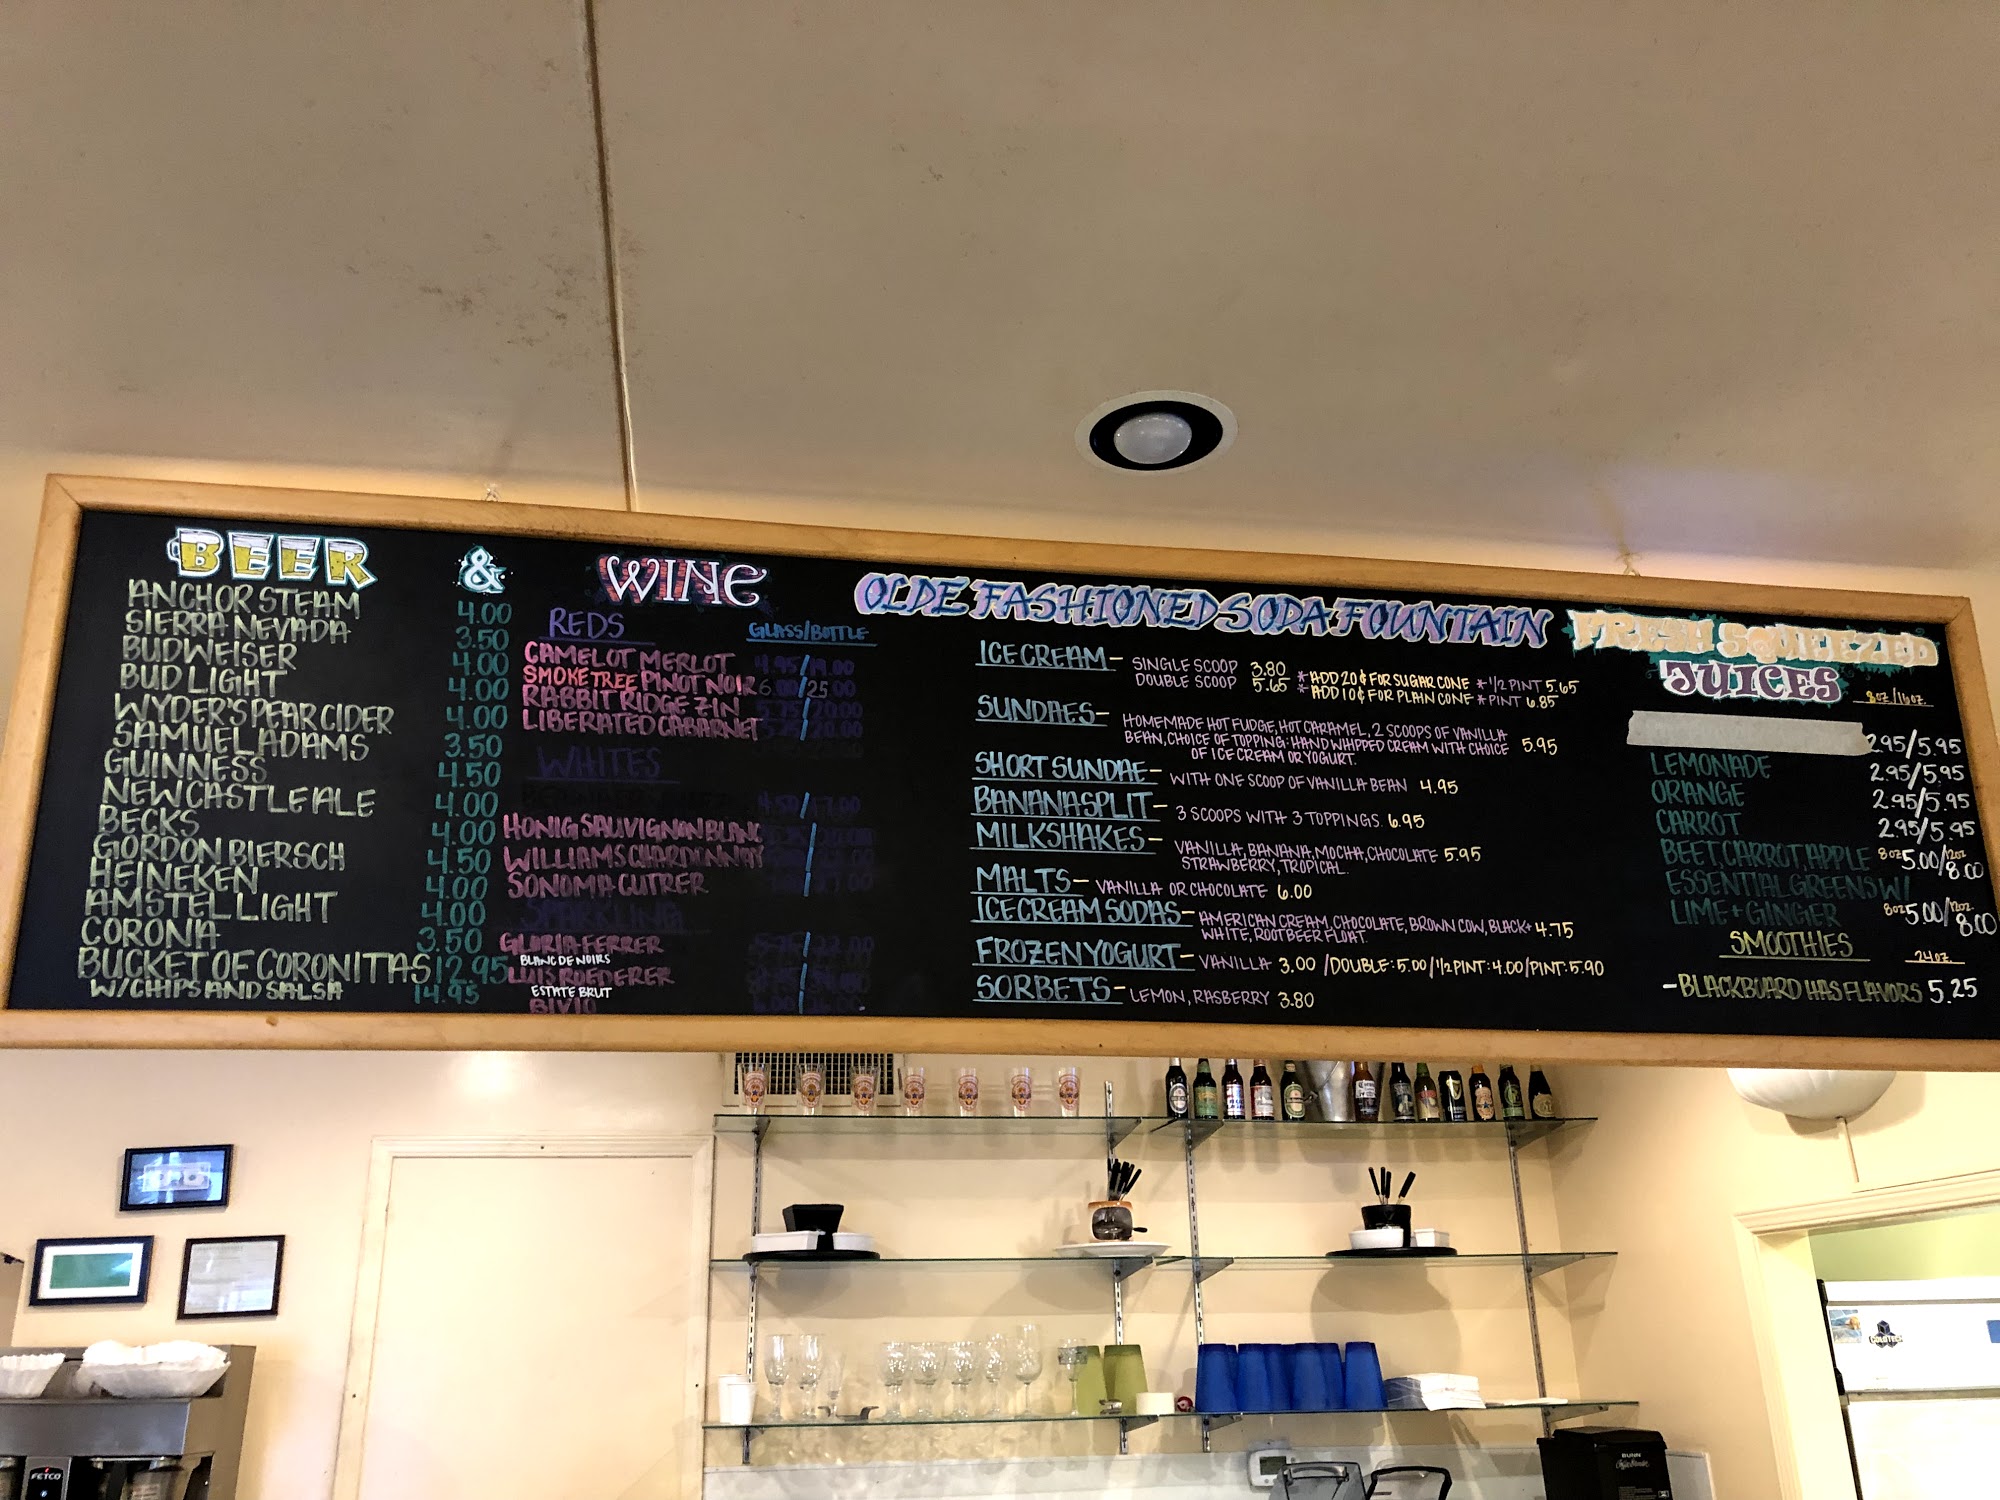 BEER & WINE
ANCHOR STEAM 4.00
SIERRA NEVADA 3.50
BUDWEISER 4.00
BUD LIGHT 4.00
WYDER'S PEAR CIDER 4.00
SAMUEL ADAMS 3.50
GUINNESS 4.50
NEWCASTLE ALE 4.00
BECKS 4.00
GORDON BIERSCH 4.50
HEINEKEN 4.00
AMSTEL LIGHT 4.00
CORONA 3.50
BUCKET OF CORONITAS 12.95
W/CHIPS AND SALSA 14.95
REDS GLASS/BOTTLE
CAMELOT MERLOT 4.95/19.00
SMOKE TREE PINOT NOIR 6.00/25.00
RABBIT RIDGE ZIN 5.75/20.00
LIBERATED CABARNET 5.25/20.00
WHITES
4.50/17.00
HONIG SAUVIGNON BLANC
WILLIAMS CHARDONNAY
SONOMA CUTRER
SPARKLING
GLORIA FERRER
BLANC DE NOIRS
LUIS ROEDERER
ESTATE BRUT
BIVIO
OLDE FASHIONED SODA FOUNTAIN
ICE CREAM- SINGLE SCOOP 3.80
DOUBLE SCOOP 5.65
*ADD 20¢ FOR SUGAR CONE *1/2 PINT 5.65
*ADD 10¢ FOR PLAIN CONE *PINT 6.85
SUNDAES- HOMEMADE HOT FUDGE, HOT CARAMEL, 2 SCOOPS OF VANILLA
BEAN, CHOICE OF TOPPING: HAND WHIPPED CREAM WITH CHOICE 5.95
OF ICE CREAM OR YOGURT.
SHORT SUNDAE- WITH ONE SCOOP OF VANILLA BEAN 4.95
BANANA SPLIT- 3 SCOOPS WITH 3 TOPPINGS. 6.95
MILKSHAKES- VANILLA, BANANA, MOCHA, CHOCOLATE 5.95
STRAWBERRY, TROPICAL.
MALTS- VANILLA OR CHOCOLATE 6.00
ICE CREAM SODAS- AMERICAN CREAM, CHOCOLATE, BROWN COW, BLACK+ 4.75
WHITE, ROOTBEER FLOAT.
FROZEN YOGURT- VANILLA 3.00 /DOUBLE: 5.00/1/2 PINT: 4.00/PINT: 5.90
SORBETS- LEMON, RASBERRY 3.80
FRESH SQUEEZED
JUICES 8oz/16oz.
2.95/5.95
LEMONADE 2.95/5.95
ORANGE 2.95/5.95
CARROT 2.95/5.95
BEET, CARROT, APPLE 8oz 5.00/12oz. 8.00
ESSENTIAL GREENS W/
LIME + GINGER 8oz 5.00/12oz. 8.00
SMOOTHIES 24oz.
-BLACKBOARD HAS FLAVORS 5.25
FETCO
BUNN